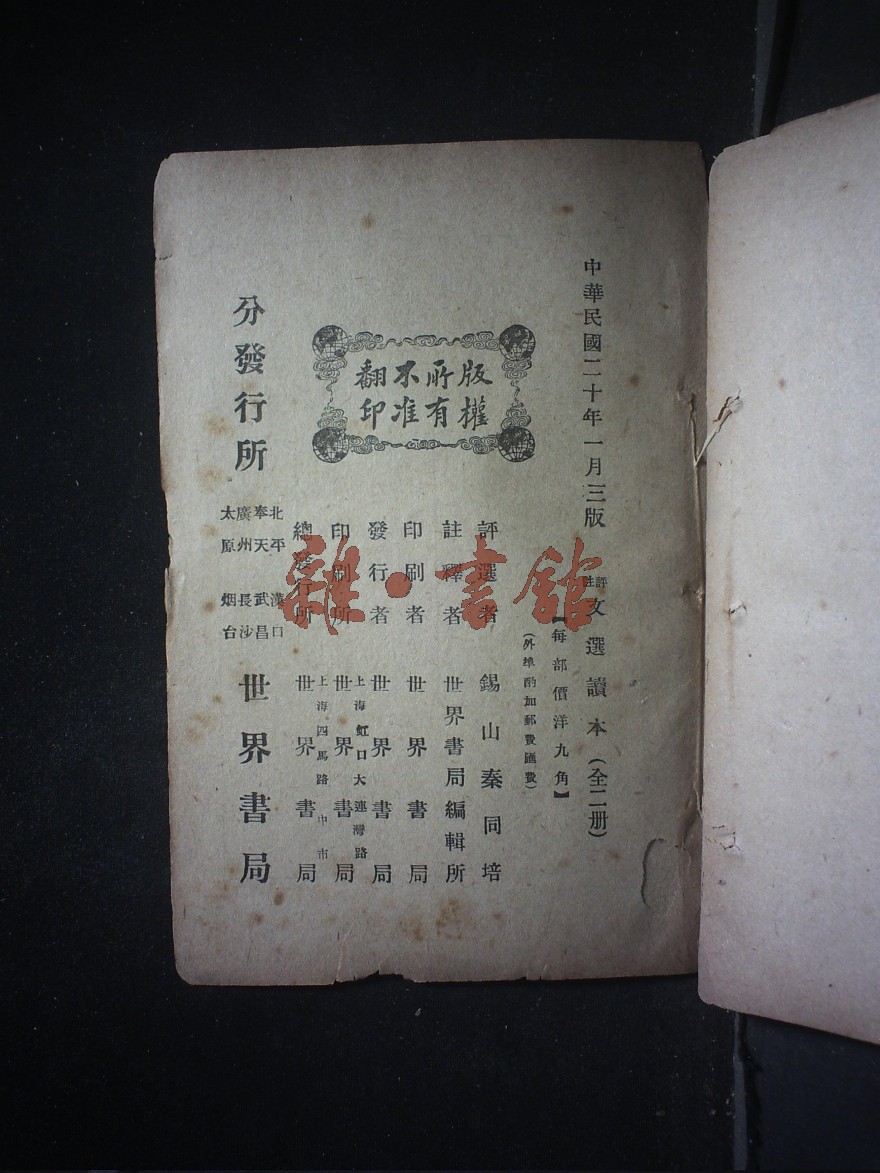 中華民國二十年一月三版
評註文選讀本(全二册)
【每部價洋九角】
(外埠酌加郵費匯費)
版權
所有
不准
翻印
評選者 錫山秦同培
註釋者 世界書局編輯所
印刷者 世界書局
發行者 世界書局
上海虹口大連灣路
印刷所 世界書局
上海四馬路中市
總發行所 世界書局
分發行所
北平 漢口
奉天 武昌
廣州 長沙
太原 烟台
世界書局
雜·書館